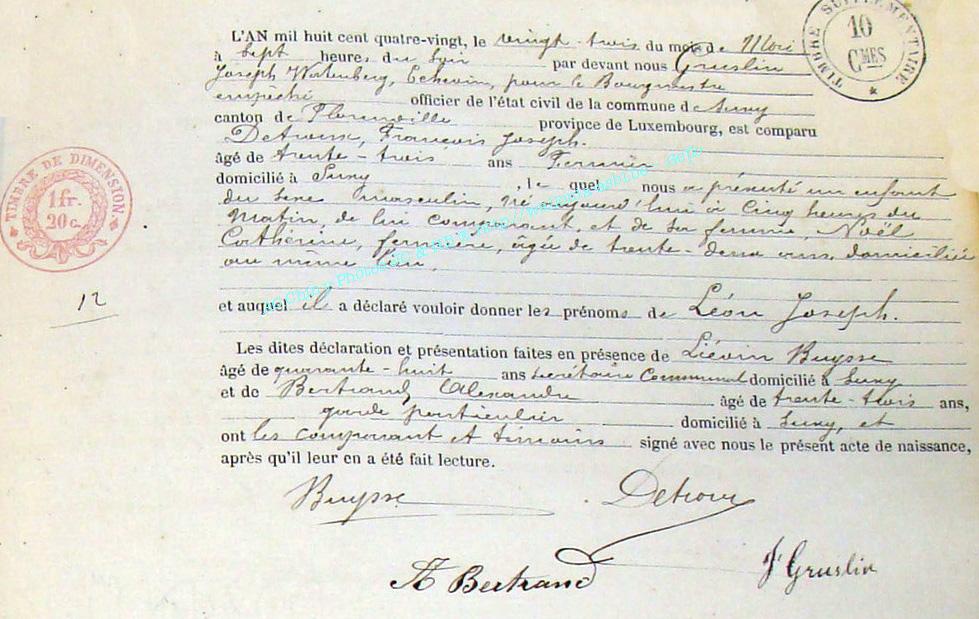 TIMBRE SUPPLÉMENTAIRE
10
CMES
L'AN mil huit cent quatre-vingt, le vingt-trois du mois de Mai
à sept heures du soir par devant nous Gruslin
Joseph Echevin, pour le Bourgmestre
empêché officier de l'état civil de la commune de Suxy
canton de Florenville province de Luxembourg, est comparu
Detroux, François Joseph.
âgé de trente-trois ans Fermier
domicilié à Suxy, le quel nous a présenté un enfant
du sexe masculin, né aujourd'hui à cinq heures du
Matin, de lui comparant, et de sa femme, Noël
Cathérine, fermière, âgée de trente-deux ans, domiciliée
au même lieu.
TIMBRE DE DIMENSION.
1fr.
20c.
12
et auquel il a déclaré vouloir donner les prénoms de Léon Joseph.
Les dites déclaration et présentation faites en présence de Liévin Buysse
âgé de quarante-huit ans secrétaire Communal domicilié à Suxy
et de Bertrand Alexandre âgé de trente-trois ans,
garde particulier domicilié à Suxy, et
ont les comparant et témoins signé avec nous le présent acte de naissance,
après qu'il leur en a été fait lecture.
Buysse Detroux
A Bertrand J Gruslin